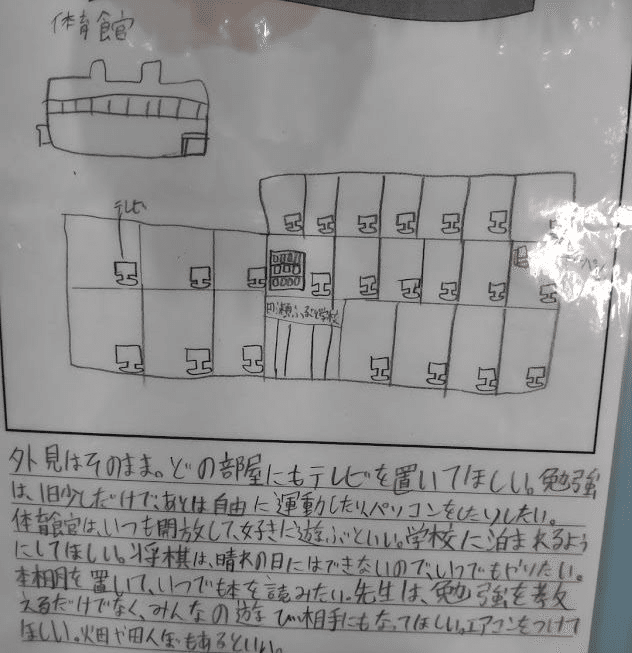 体育館
テレビ
外見はそのまま。どの部屋にもテレビを置いてほしい。勉強
は、1日少しだけで、あとは自由に運動したり、パソコンをしたりしたい。
体育館は、いつも開放して、好きに遊ぶといい。学校に泊まれるよう
にしてほしい。将棋は、晴れの日にはできないので、いつでもやりたい。
本棚を置いて、いつでも本を読みたい。先生は、勉強を教
えるだけでなく、みんなの遊び相手にもなってほしい。エアコンをつけて
ほしい。畑や田んぼもあるといい。